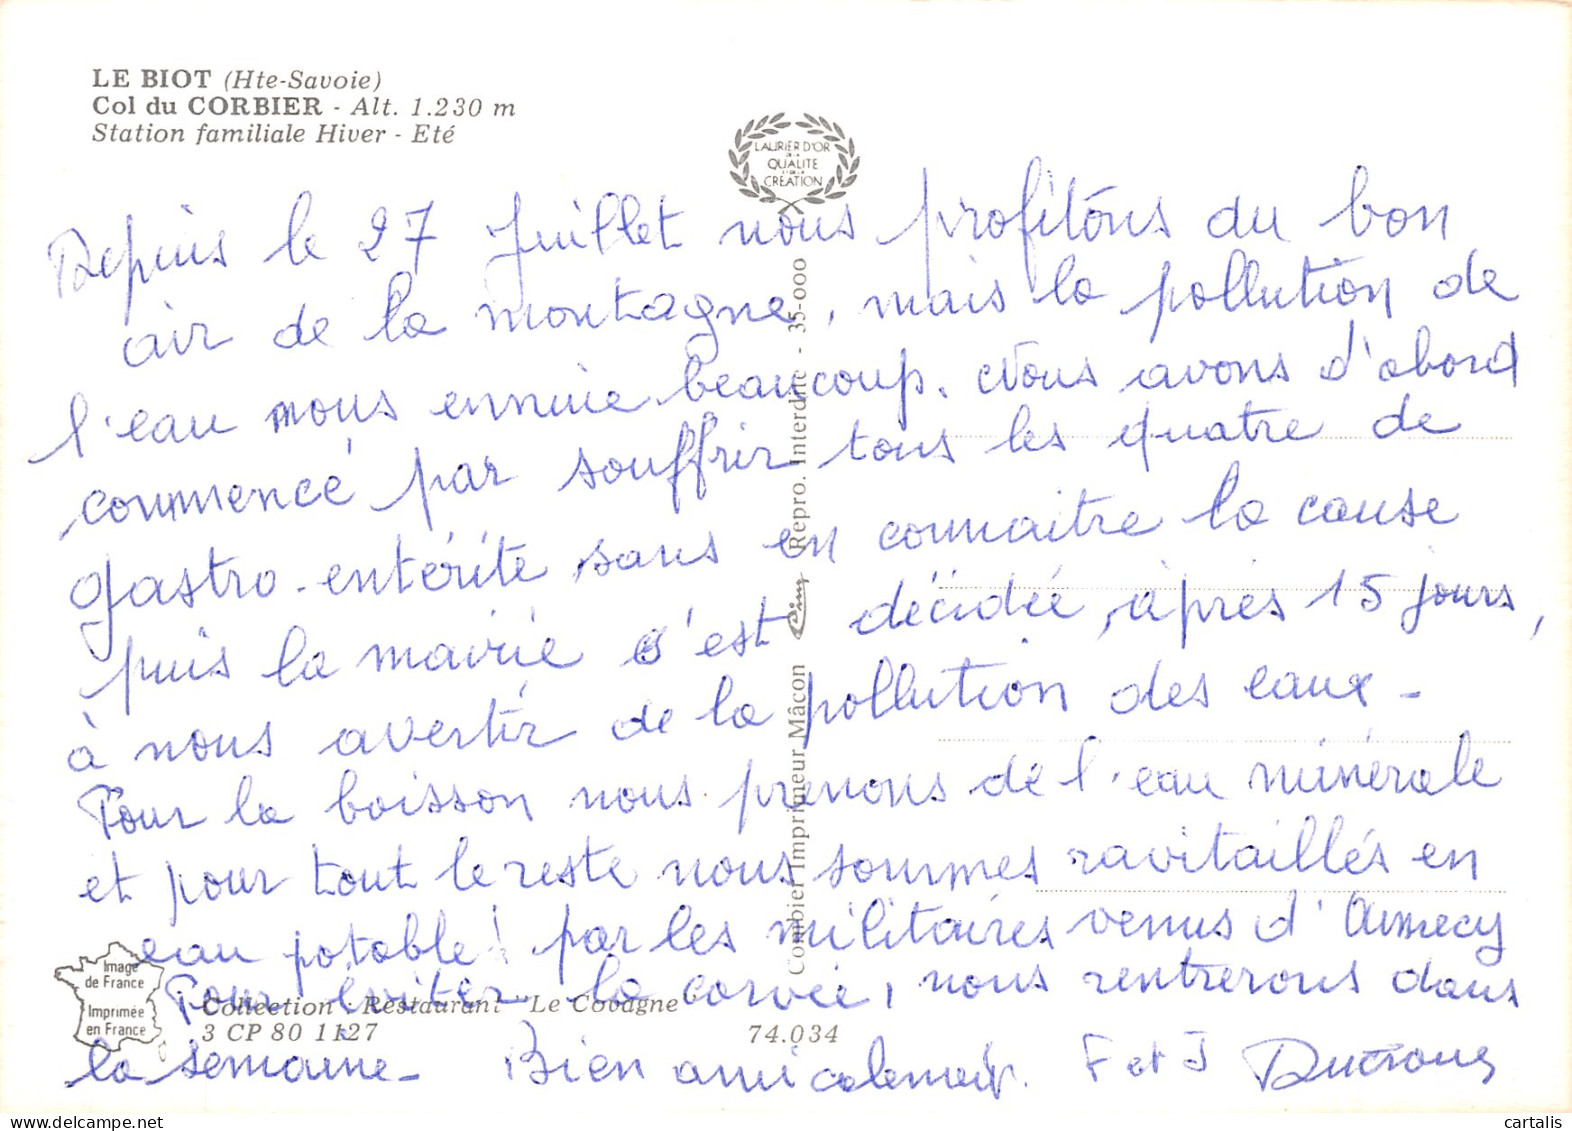 LE BIOT (Hte-Savoie)
Col du CORBIER - Alt. 1.230 m
Station familiale Hiver - Eté
LAURIER D'OR
DE LA
QUALITE
ET DE LA
CRÉATION
Depuis le 27 Juillet nous profitons du bon
air de la montagne, mais la pollution de
l'eau nous ennuie beaucoup. Nous avons d'abord
commencé par souffrir tous les quatre de
gastro-entérite sans en connaitre la cause
puis la mairie s'est décidée, après 15 jours,
à nous avertir de la pollution des eaux -
Pour la boisson nous prenons de l'eau minérale
et pour tout le reste nous sommes ravitaillés en
eau potable! par les militaires venus d'Annecy
Pour éviter la corvée, nous rentrerons dans
la semaine - Bien amicalement. F et J Ducroux
Combier Imprimeur Mâcon Cim Repro. Interdite - 35-000
Image
de France
Imprimée
en France
Collection : Restaurant "Le Covagne"
3 CP 80 1127
74.034
cartalis
www.delcampe.net